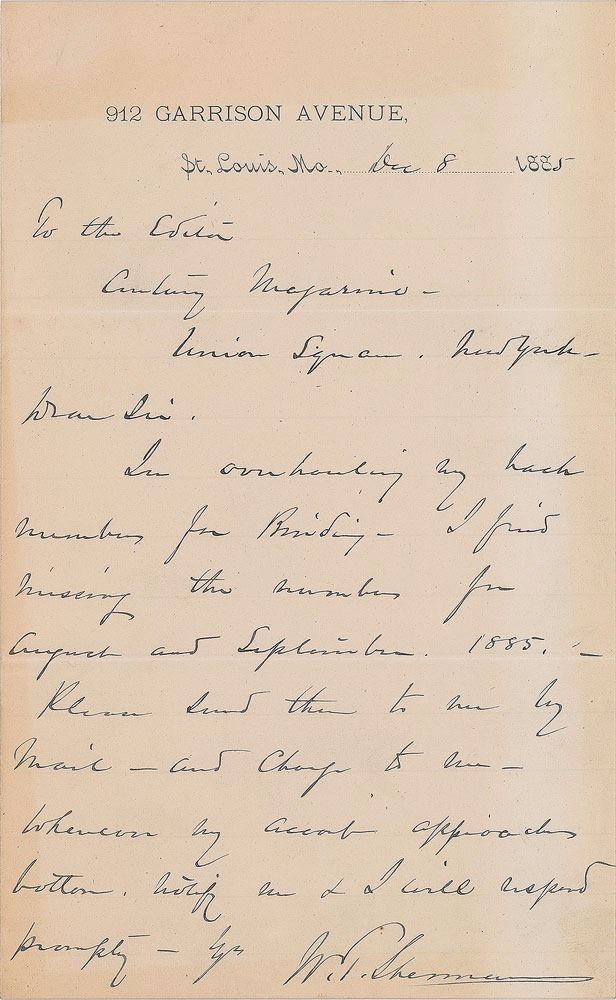 912 GARRISON AVENUE,
St. Louis, Mo., Dec 8 1885
To the Editor
Century Magazine -
Union Square. New York -
Dear Sir.
In overhauling my back
numbers for Binding - I find
missing the numbers for
August and September. 1885. -
Please send them to me by
Mail - and Charge to me -
Whenever my account approaches
bottom. notify me & I will respond
promptly - Yrs W. T. Sherman